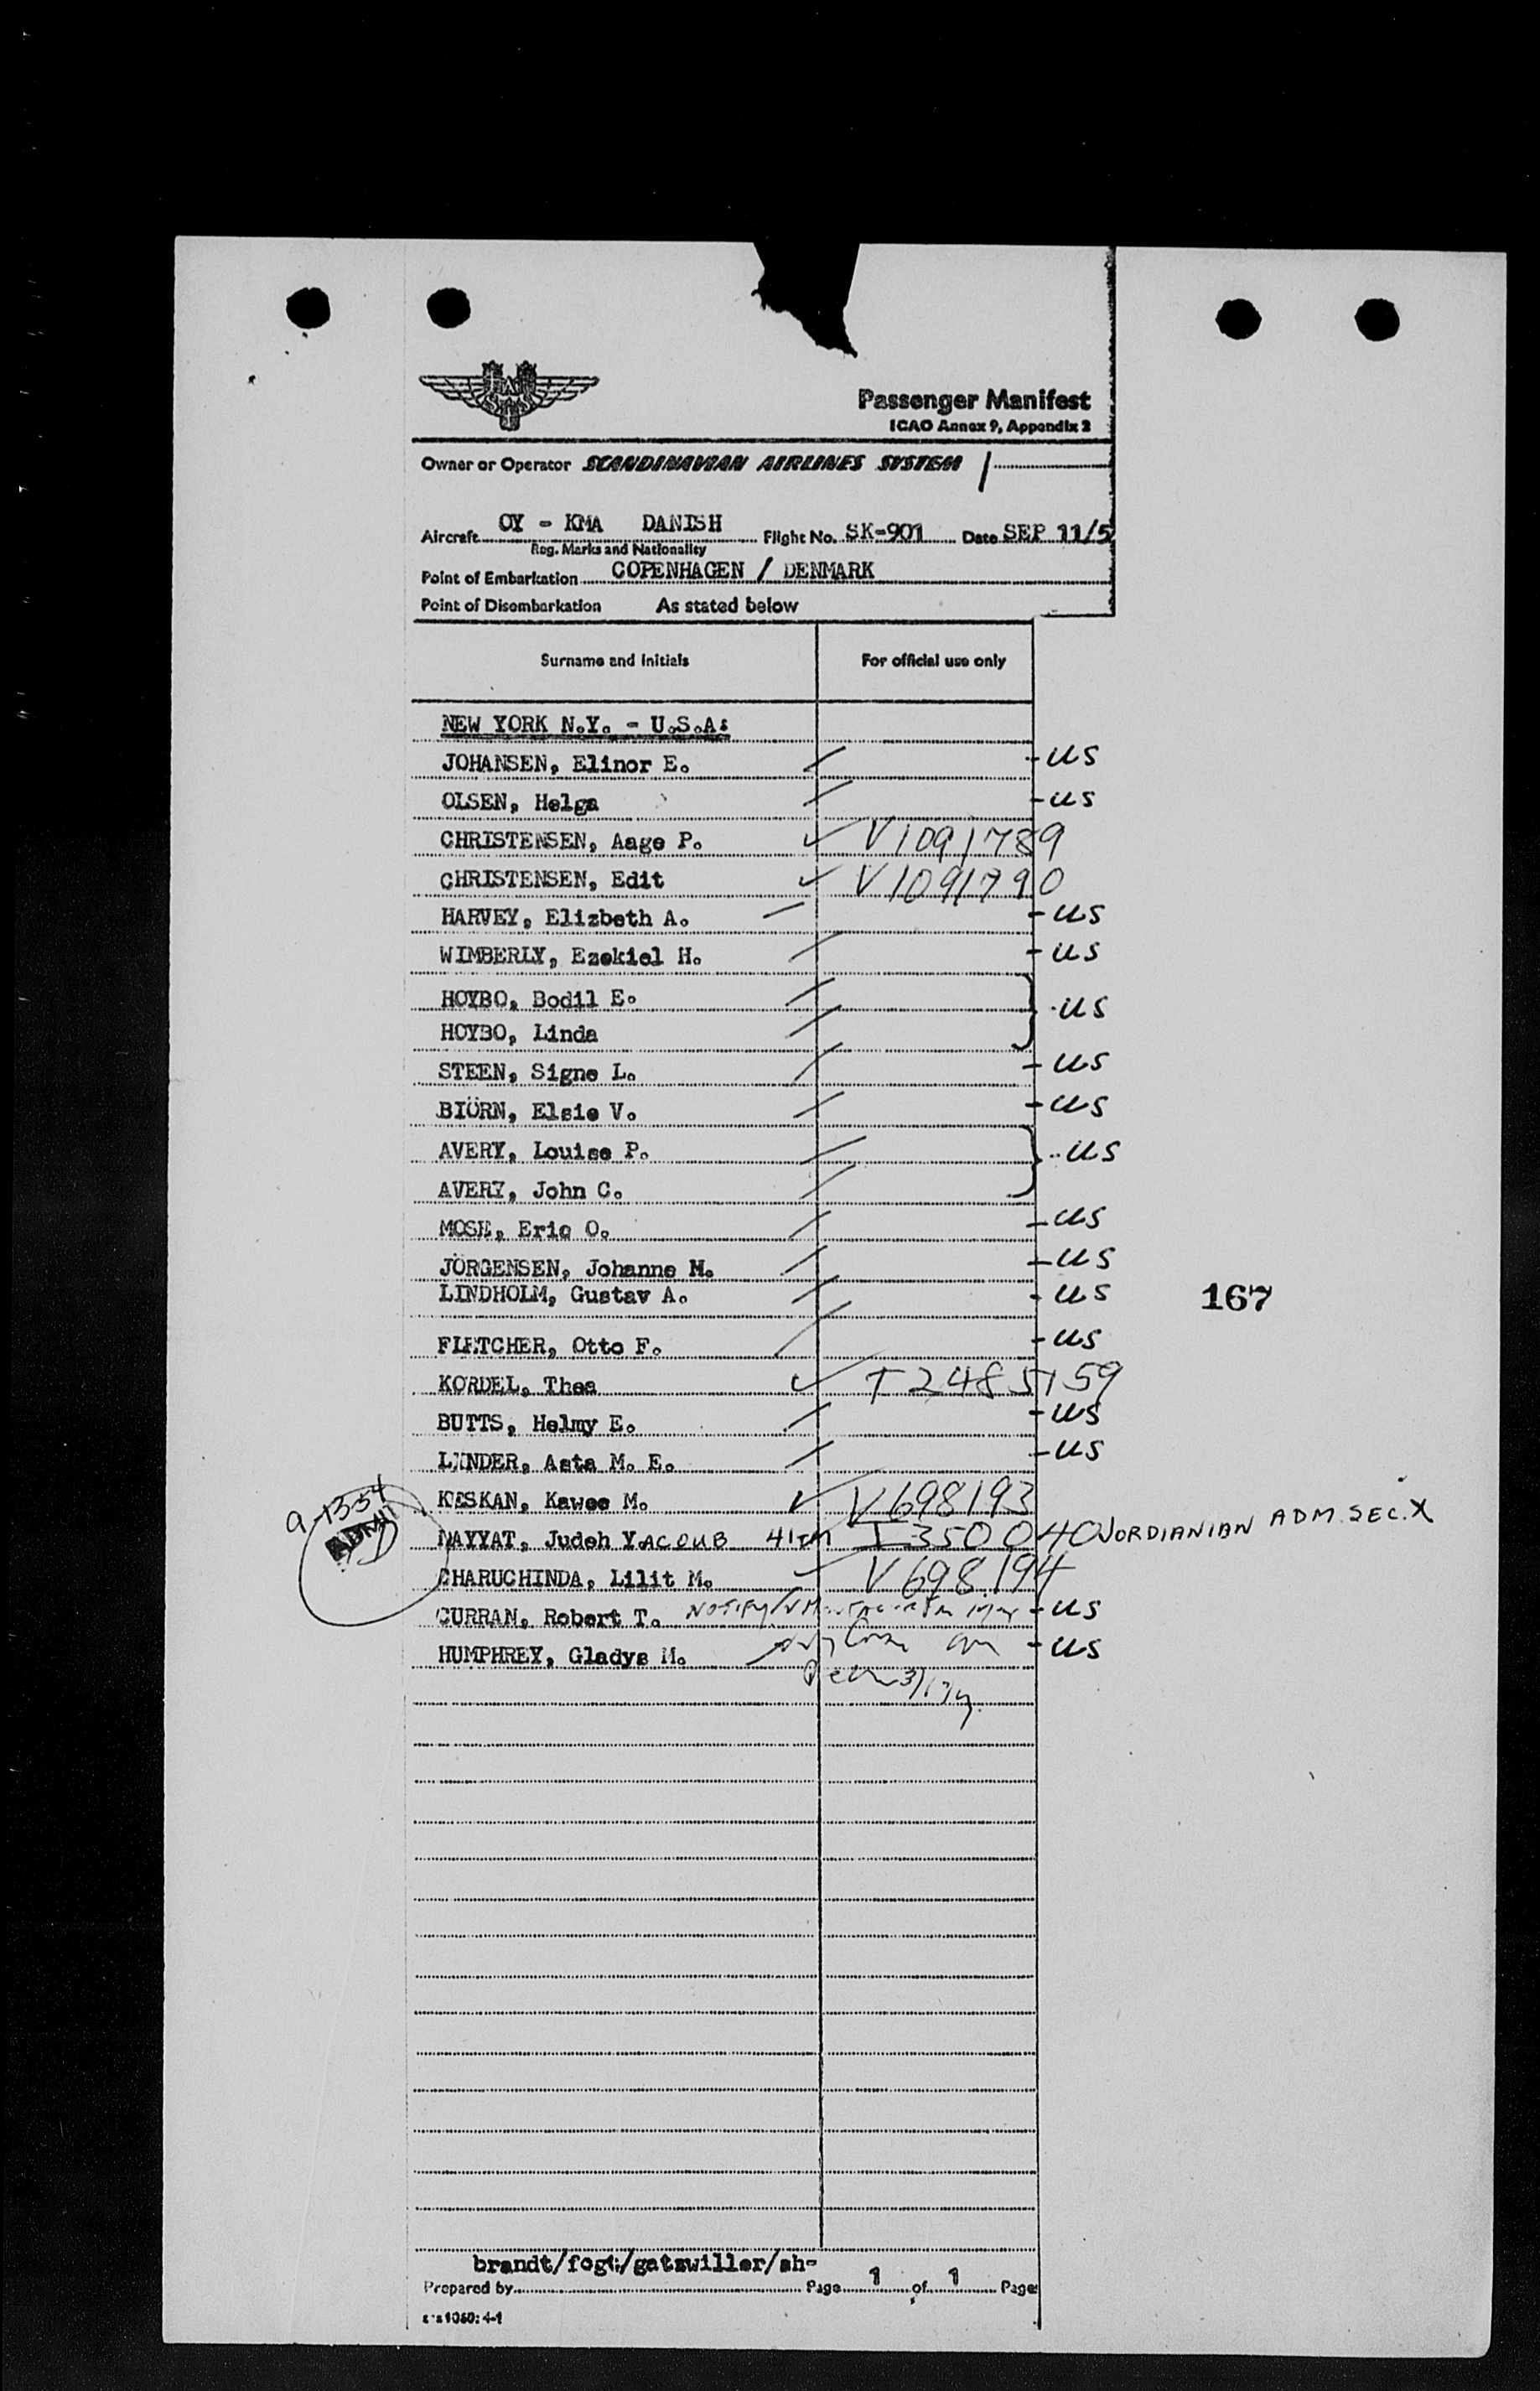 Passenger Manifest
ICAO Annex 9, Appendix 2
Owner or Operator SCANDINAVIAN AIRLINES SYSTEM
Aircraft OY - KMA DANISH Flight No. SK-901 Date SEP 11/5
Reg. Marks and Nationality
Point of Embarkation COPENHAGEN / DENMARK
Point of Disembarkation As stated below
Surname and Initials For official use only
NEW YORK N.Y. - U.S.A:
JOHANSEN, Elinor E. - US
OLSEN, Helga - US
CHRISTENSEN, Aage P. ✓ V1091789
CHRISTENSEN, Edit ✓ V1091790
HARVEY, Elizbeth A. - US
WIMBERLY, Ezekiel H. - US
HOYBO, Bodil E.
HOYBO, Linda - US
STEEN, Signe L. - US
BIÖRN, Elsie V. - US
AVERY, Louise P. - US
AVERY, John C.
MOSE, Eric O. - US
JÖRGENSEN, Johanne M. - US
LINDHOLM, Gustav A. - US
167
FLETCHER, Otto F. - US
KORDEL, Thea ✓ T2485159
BUTTS, Helmy E. - US
LINDER, Asta M. E. - US
9-13-54
KESKAN, Kawee M. ✓ V698193
ADMIT
NAYYAT, Judeh YACOUB I350040 JORDIANIAN ADM. SEC. X
CHARUCHINDA, Lilit M. ✓ V698194
CURRAN, Robert T. NOTIFY - US
HUMPHREY, Gladys M. - US
brandt/fogt/gatzwiller/sh-
Prepared by Page 1 of 1 Page
1060: 4-1